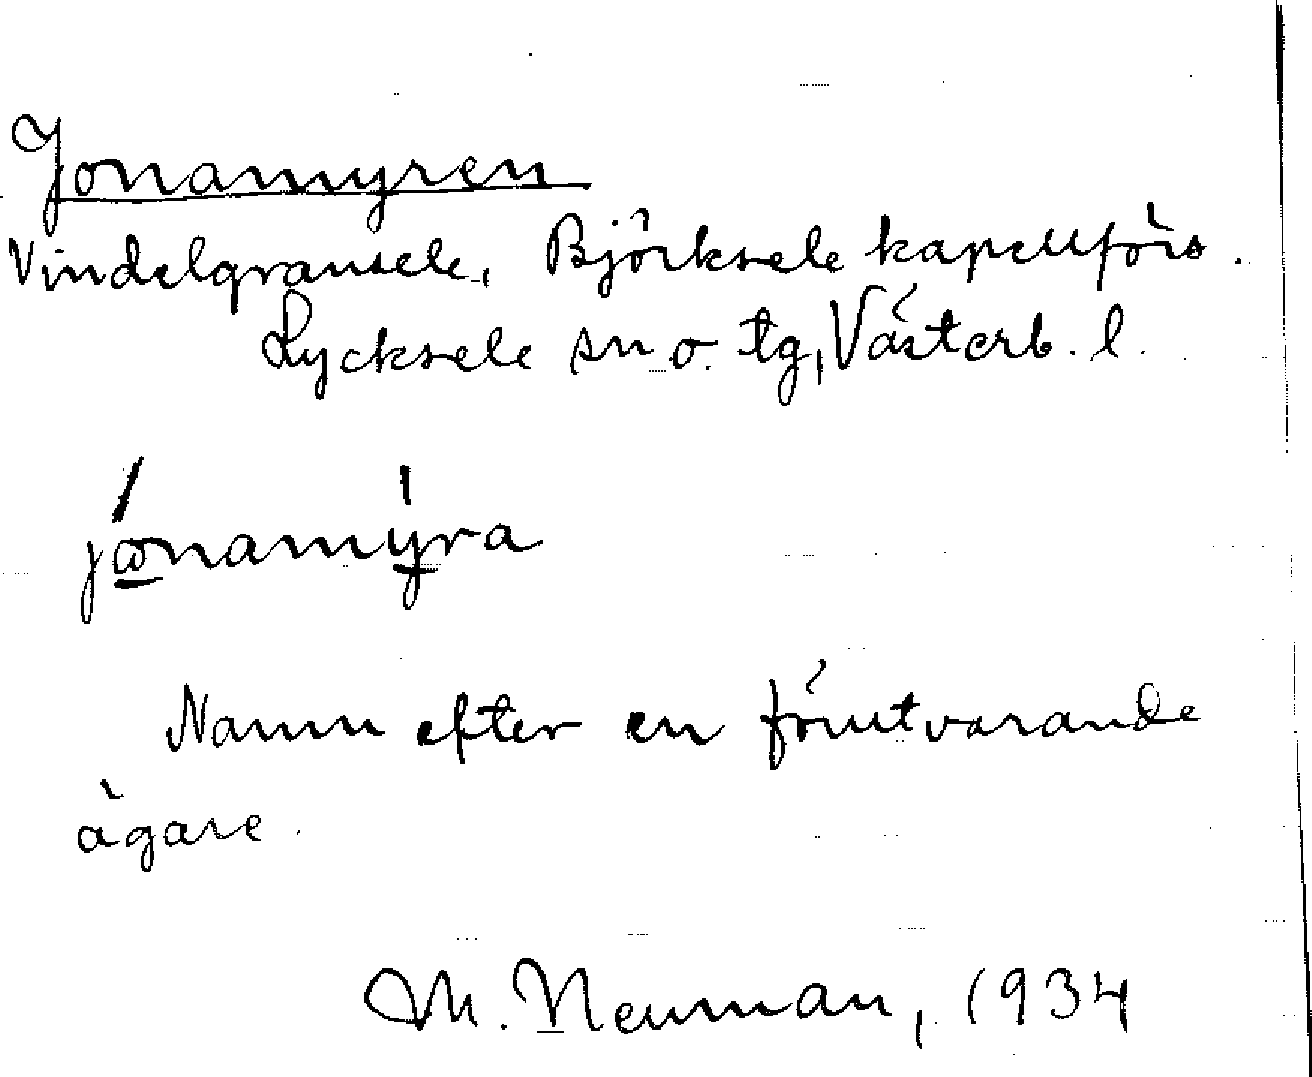 Jonamyren
Vindelgransele, Björksele kapellförs.
Lycksele sn o. tg, Västerb. l.
jònamýra
Namn efter en förutvarande
ägare.
M. Neuman, 1934